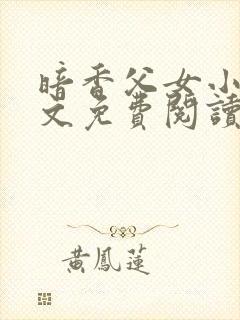 暗香父女小
文免費閱讀
黃鳳蓮